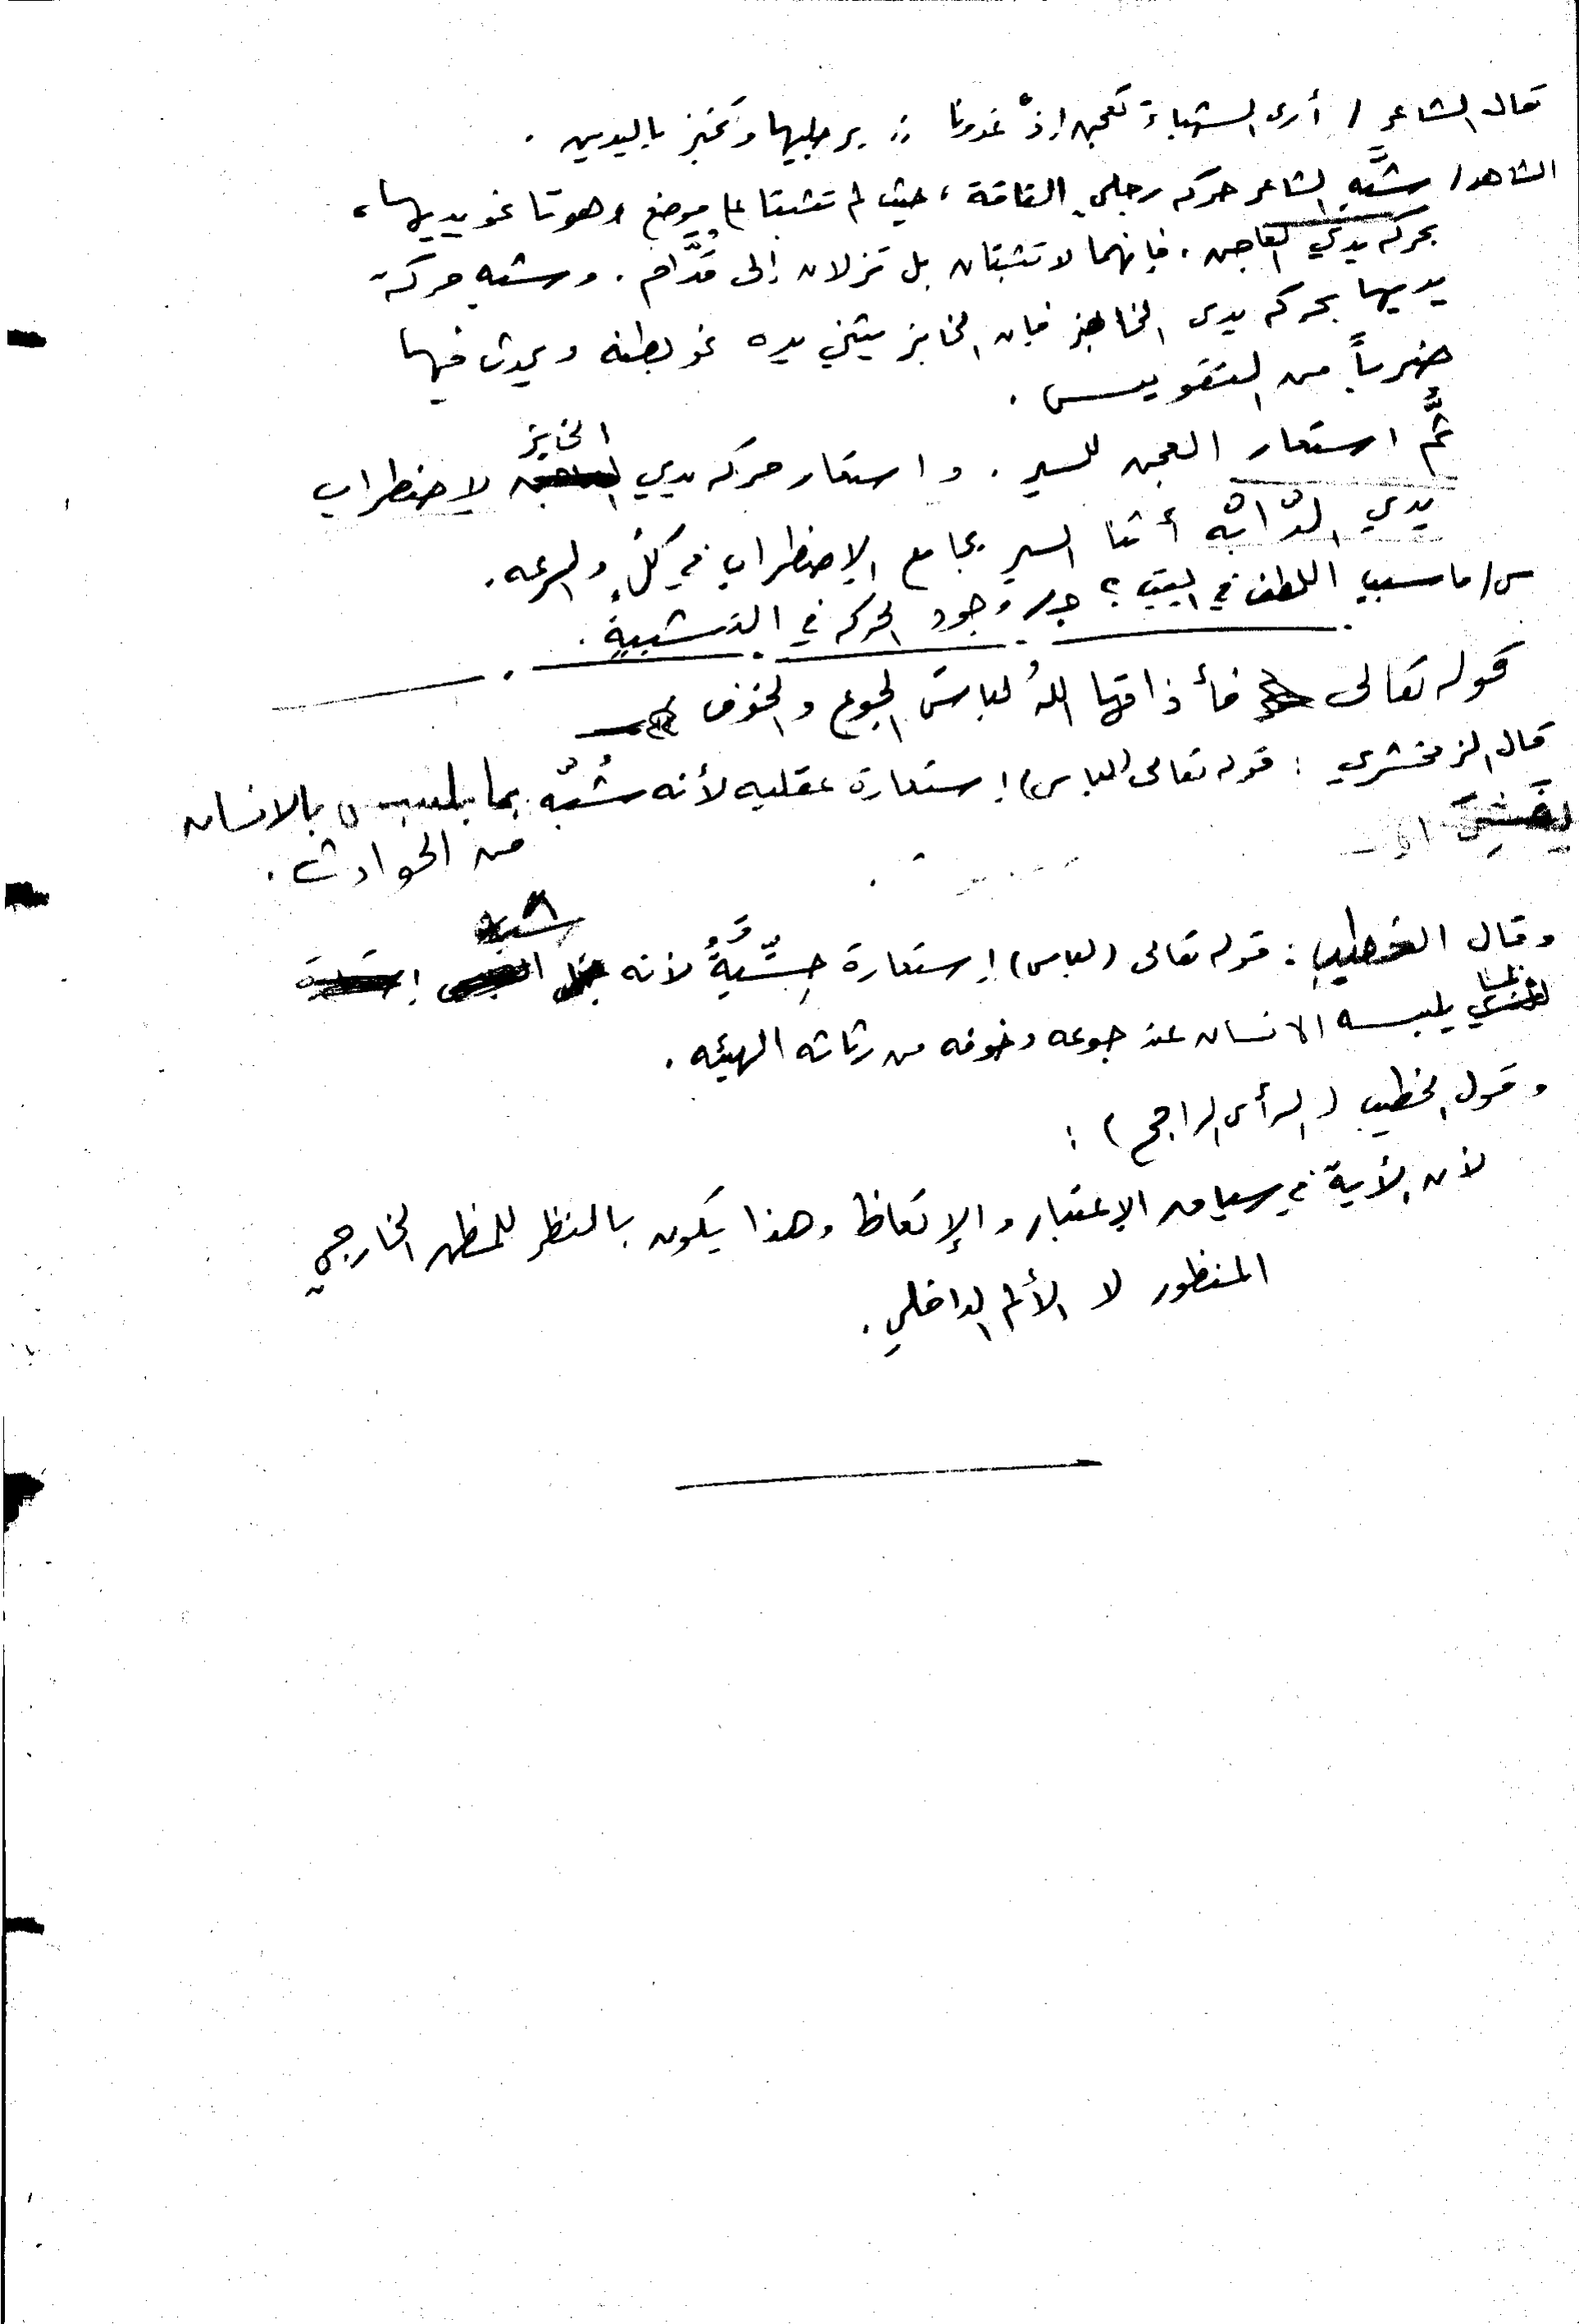 قال الشاعر / أرى الشهباء تعجن إذْ غدونا :: برجليها وتخبز باليدين .
الشاهد / شبَّه الشاعر حركه رجلي الناقة ، حيث لم تثبتا على موضع وهوتا نحو يديها ،
بحركه يدي العاجن . فإنهما لا تثبتان بل تزلان إلى قُدَّام . وشبه حركة
يديها بحركه يدى الخابز فإن الخابز يثني يده نحو بطنه ويحدث فيها
ضرباً من التقويس .
ثُمَّ استعار العجن للسير . واستعار حركه يدي الخابز لإضطراب
يدي الدّابّه أثنا السير بجامع الإضطراب في كلٍ والسرعه .
س/ ما سبب اللطف في البيت ؟ جـ/ وجود الحركه في التشبيةِ .
كقوله تعالى فأذاقها اللهُ لباسَ الجوع والخوف
قال الزمخشري : قوله تعالى (لباس) إستعارة عقليه لأنه شُبّه بما يلتبس بالانسان
من الحوادث .
وقال الخطيب : قوله تعالى (لباس) إستعارة حِسِّيَّةُ لأنه شبه
يلبسه الانسان عند جوعه وخوفه من رثاثه الهيئه .
وقول الخطيب (الرأى الراجح) :
لأن الأية في سياق الإعتبار والإتعاظ وهذا يكون بالنظر للمظهر الخارجي
المنظور لا الألم الداخلي .